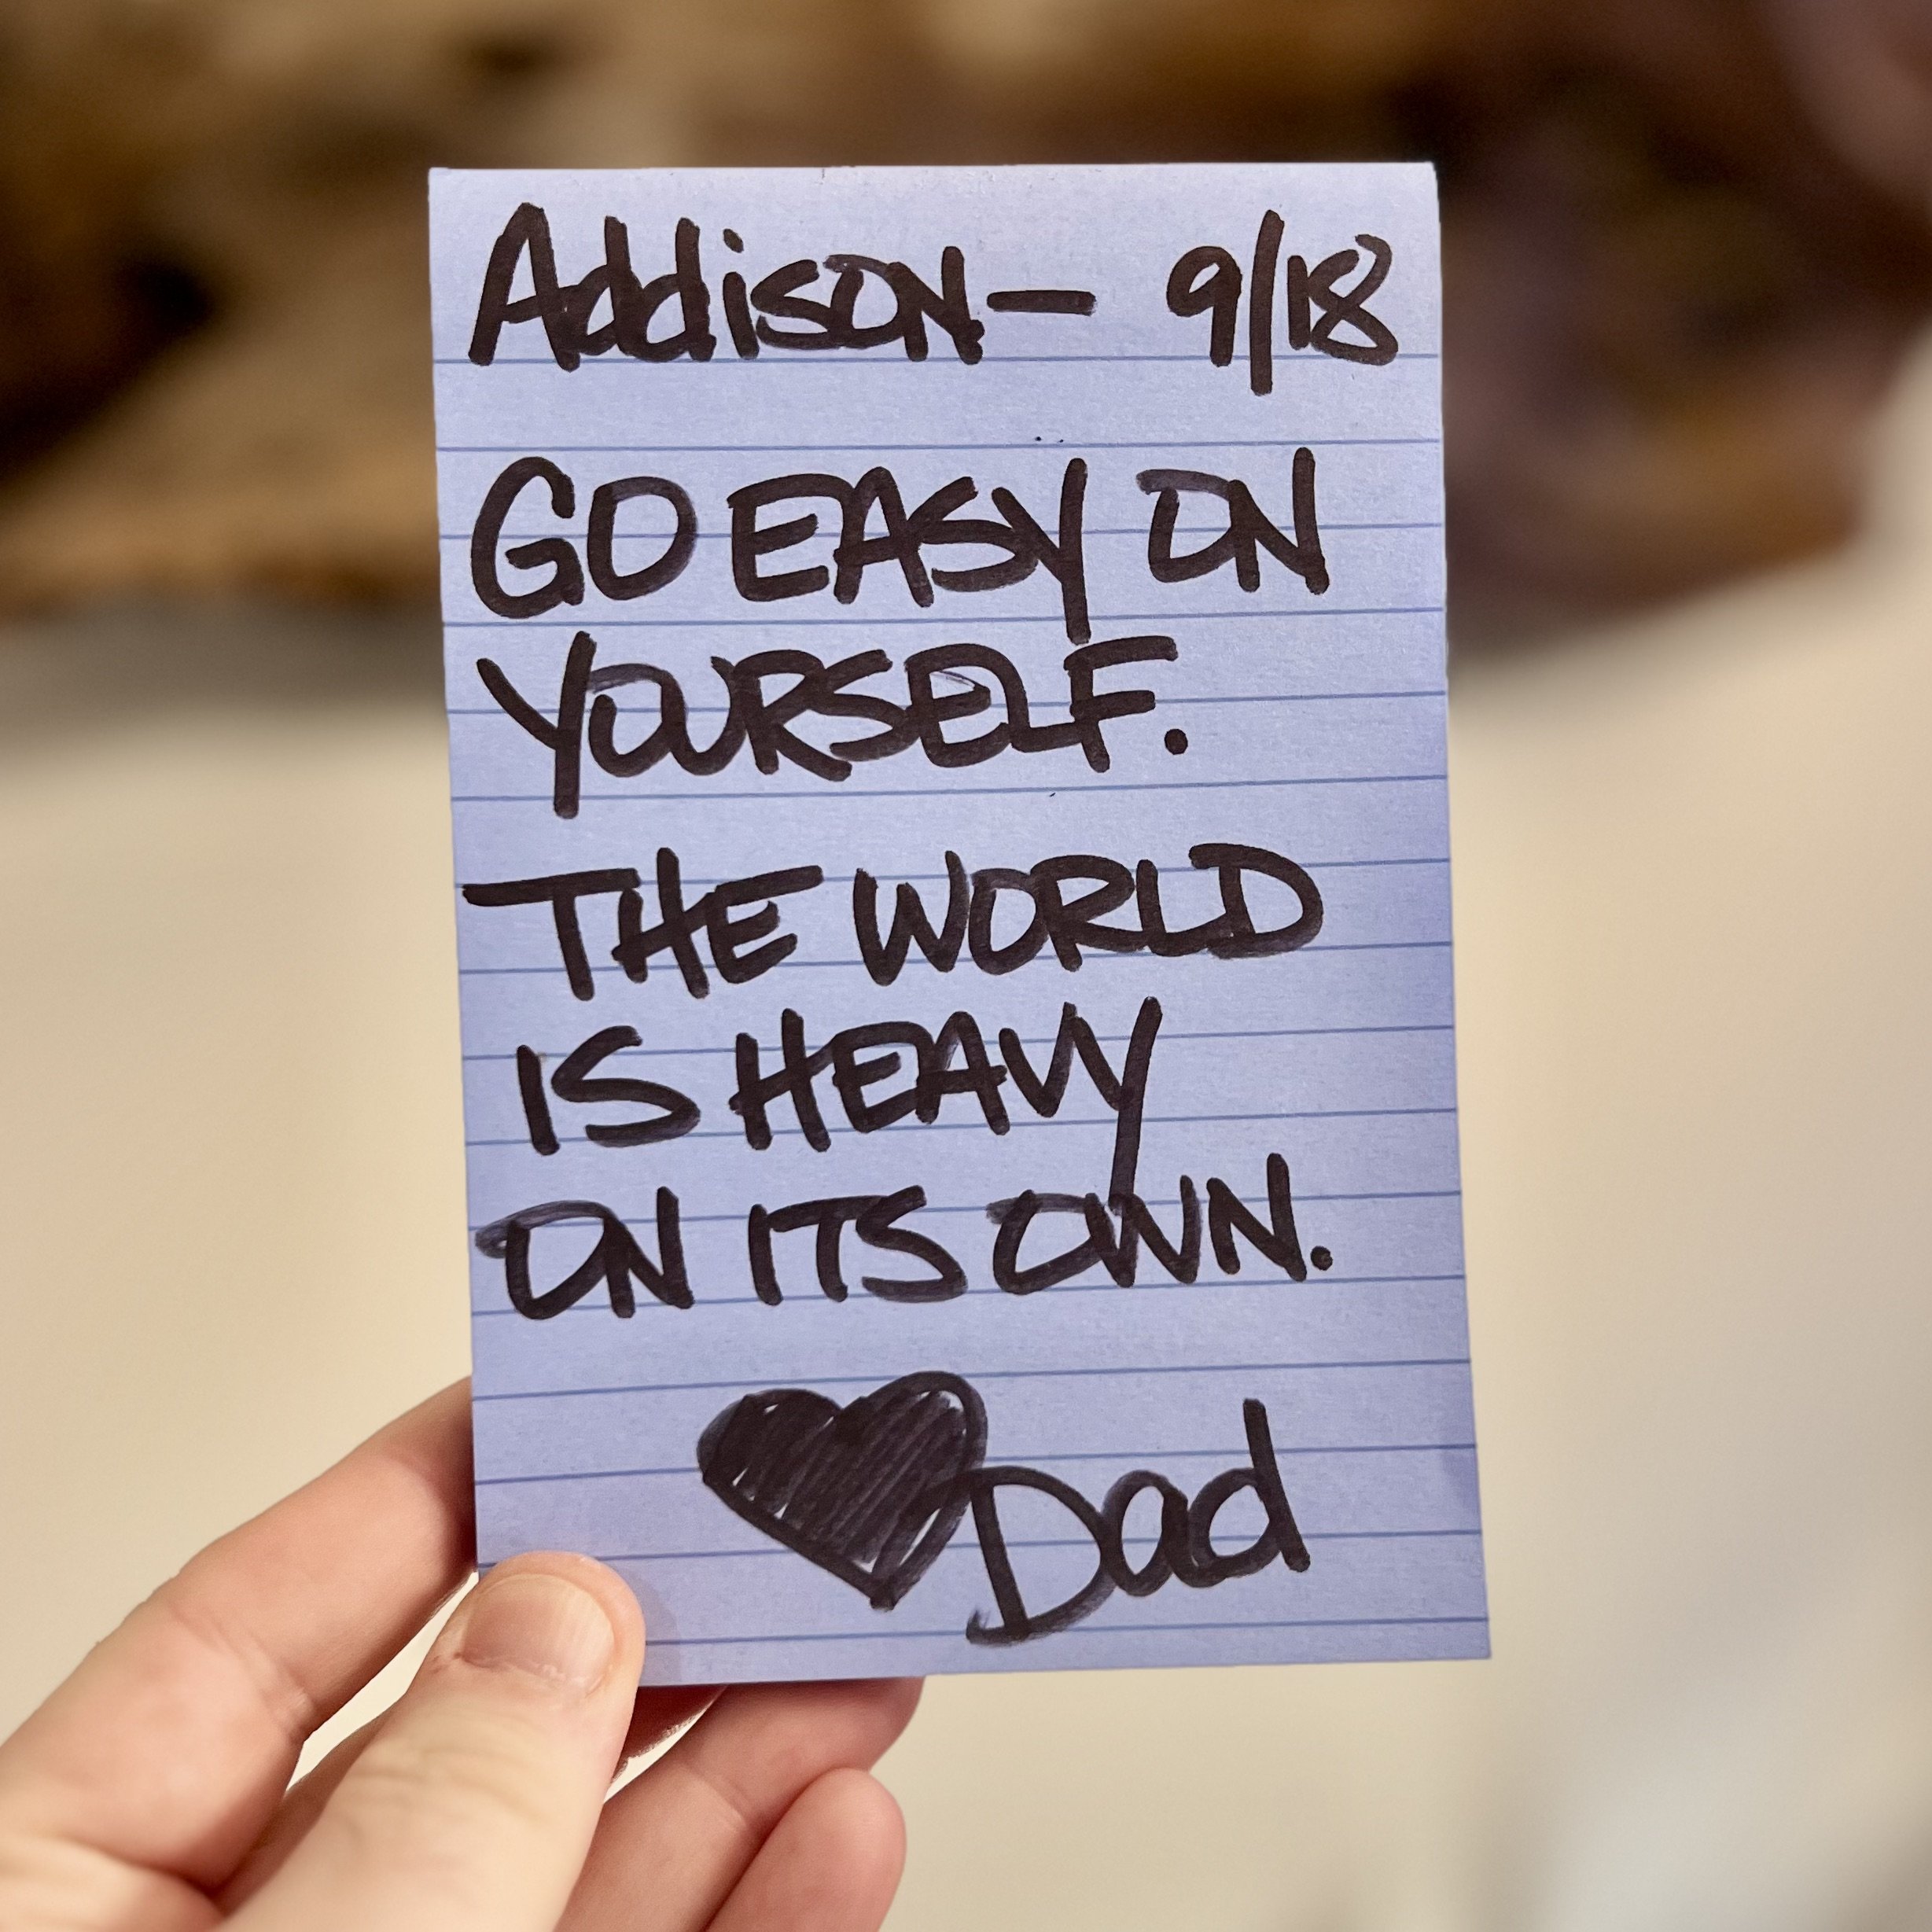 Addison— 9/18
GO EASY ON
YOURSELF.
THE WORLD
IS HEAVY
ON ITS OWN.
♥Dad